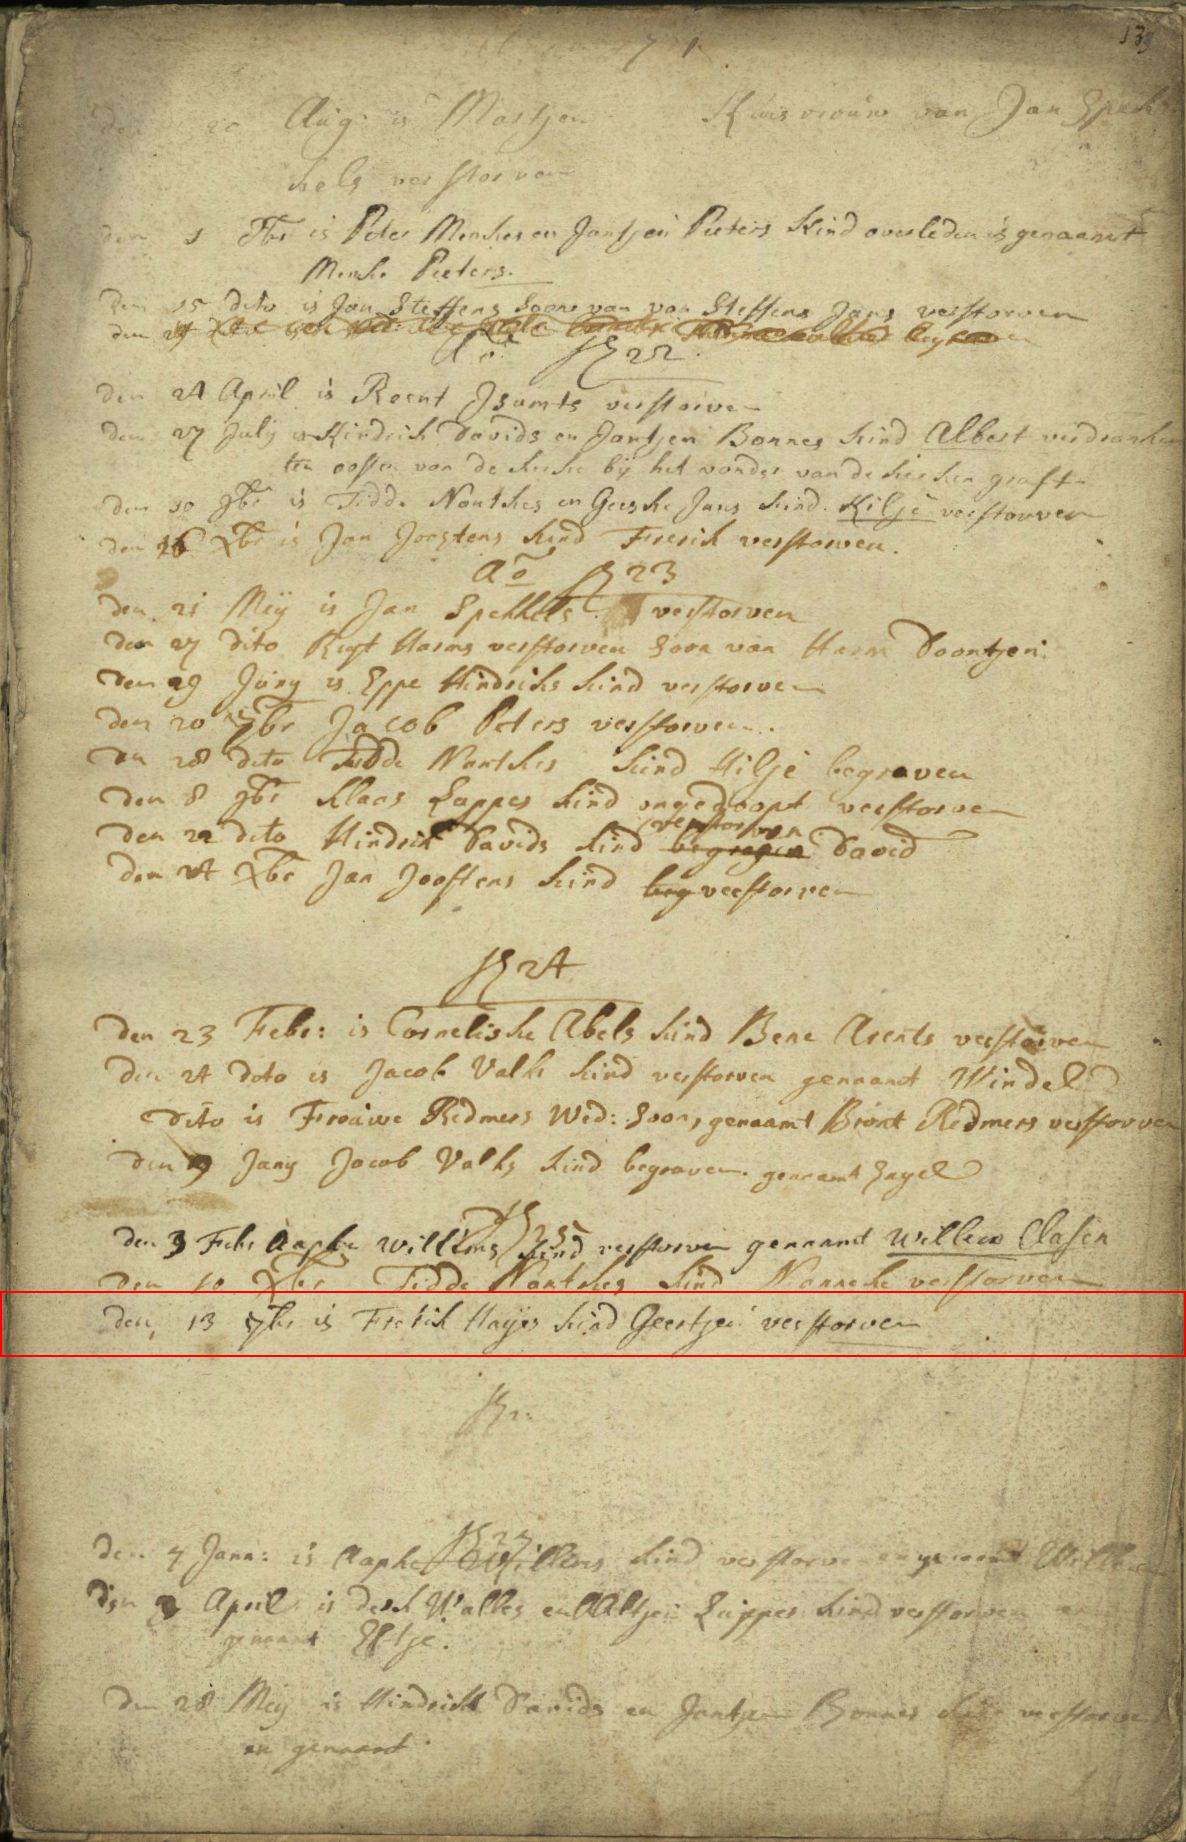 139
Aug: is Martjen Huisvrouw van Jan Spek
kels verstorven
den 1 7br is Peter Menkes en Jantjen Pieters Kind overleden is genaamt
Menke Pieters.
den 15 dito is Jan Steffens Soone van van Steffens Jans verstorven
den 29
Ao 1722
den 24 April is Reent Isamts verstorven
den 27 July is Hindrik Davids en Jantjen Bonnes kind Albert verdronken
ten oosten van de kerke bij het vonder van de kerken graft
den 10 9br is Tidde Nantkes en Geeske Jans kind Hilje verstorven
den 16 Xbr is Jan Joostens kind Frerik verstorven.
Ao 1723
den 21 Meij is Jan Spekkels verstorven
den 27 dito Harms verstorven Soon van Harm Doontjen.
den 29 Juny is Eppe Hindriks kind verstorven
den 20 7br Jacob Peters verstorven.
den 28 dito Tidde Nantkes kind Hilje begraven
den 8 9br Klaas Luppes kind ongedoopt verstorven
verstorven
den 22 dito Hindrik Davids kind begraven David
den 24 Xbr Jan Joostens kind beg verstorven
1724
den 23 Febr: is Corneliske Abels kind Bene Arents verstorven
den 24 dito is Jacob Valks kind verstorven genaamt Windel
dito is Frouwe Ridmers Wed: Soon, genaamt Bront Ridmers verstorven
den 9 Jany Jacob Valks kind begraven. genaamt Engel
1725
den 3 Febr Aapke Willms kind verstorven genaamt Willem Clasen
den 10 Xbr Tidde Nantkes kind Nanneke verstorven
den 13 7br is Frerik Haijes kind Geertjen verstorven
172
1727
den 7 Jann: is Aapke Willems kind verstorven genaamt Willem
den 3 April is derk Walles en Aaltjen Luppes kind verstorven en
genaamt Eltje.
den 28 Meij is Hindrik Davids en Jantjen Bonnes kind verstorven
en genaamt